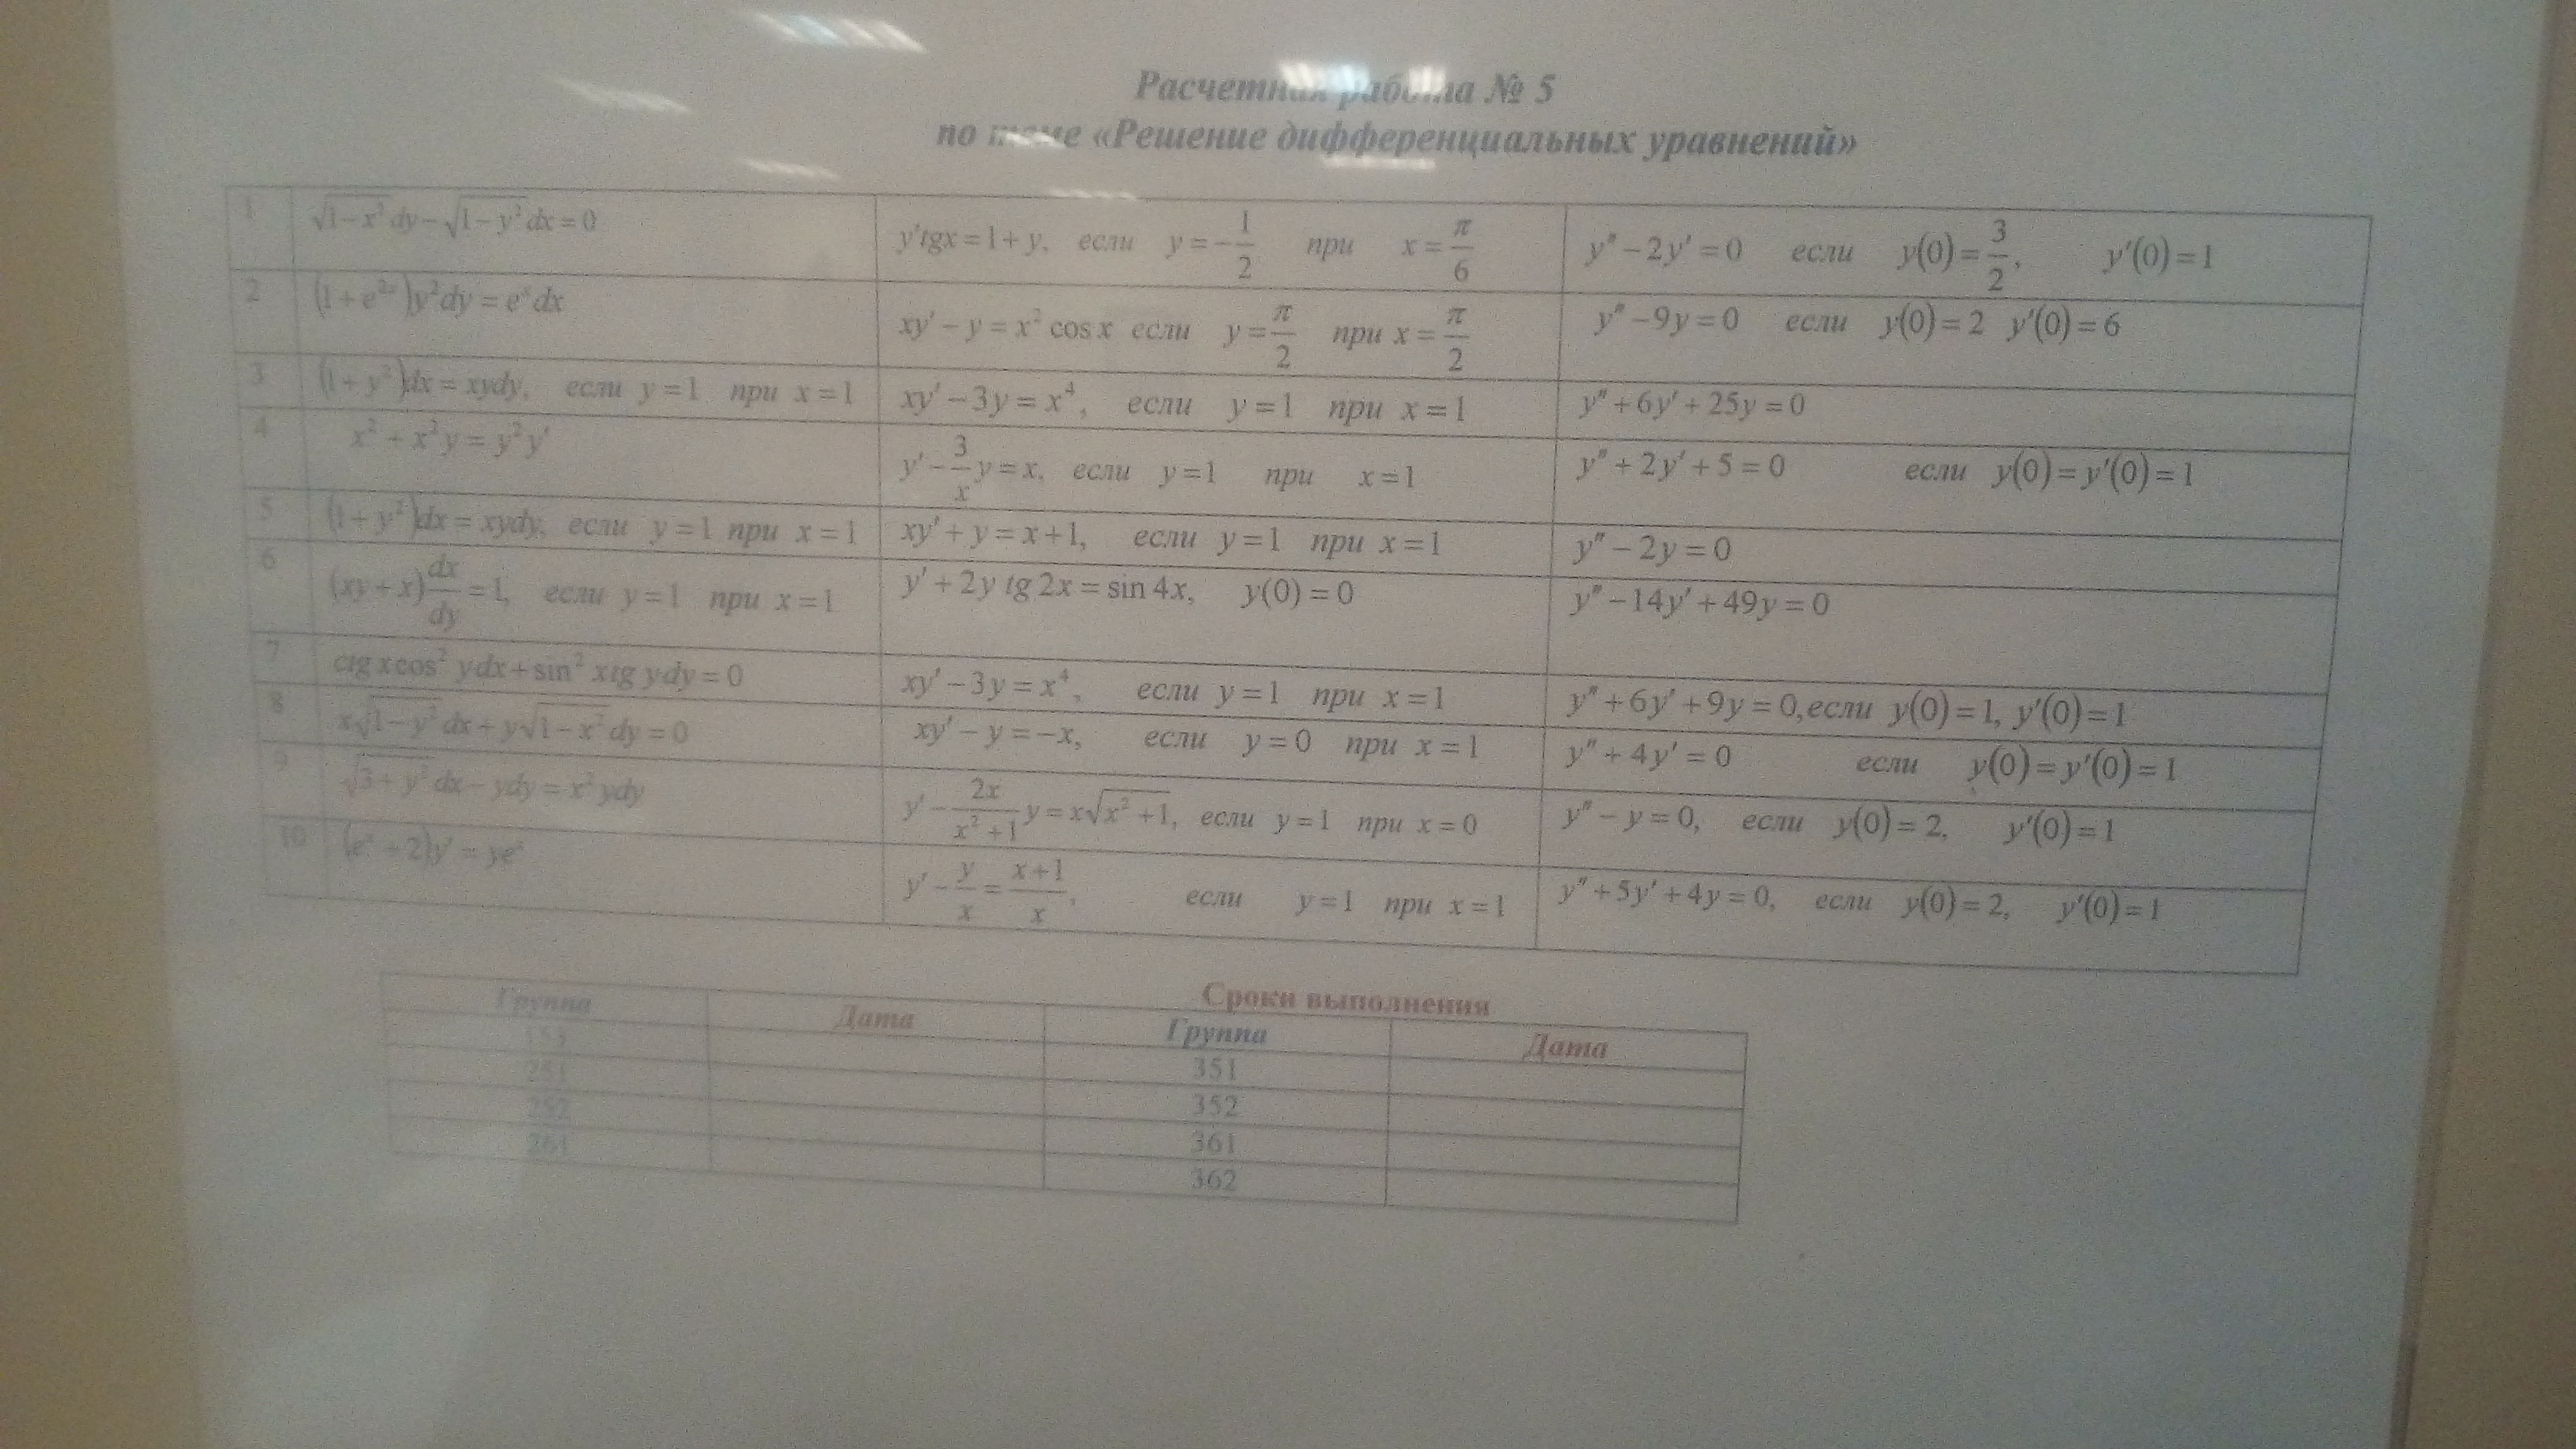 Расчетная работа № 5
по теме «Решение дифференциальных уравнений»
1 √(1−x²) dy − √(1−y²) dx = 0 y'tgx = 1 + y, если y = −1/2 при x = π/6 y'' − 2y' = 0 если y(0) = 3/2, y'(0) = 1
2 (1 + e²ˣ)y²dy = eˣdx xy' − y = x² cos x если y = π/2 при x = π/2 y'' − 9y = 0 если y(0) = 2 y'(0) = 6
3 (1 + y²)dx = xydy, если y = 1 при x = 1 xy' − 3y = x⁴, если y = 1 при x = 1 y'' + 6y' + 25y = 0
4 x² + x²y = y²y' y' − 3/x y = x, если y = 1 при x = 1 y'' + 2y' + 5 = 0 если y(0) = y'(0) = 1
5 (1 + y²)dx = xydy, если y = 1 при x = 1 xy' + y = x + 1, если y = 1 при x = 1 y'' − 2y = 0
6 (xy + x) dx/dy = 1, если y = 1 при x = 1 y' + 2y tg 2x = sin 4x, y(0) = 0 y'' − 14y' + 49y = 0
7 ctg x cos² ydx + sin² xtg ydy = 0 xy' − 3y = x⁴, если y = 1 при x = 1 y'' + 6y' + 9y = 0, если y(0) = 1, y'(0) = 1
8 x√(1−y²) dx + y√(1−x²) dy = 0 xy' − y = −x, если y = 0 при x = 1 y'' + 4y' = 0 если y(0) = y'(0) = 1
9 √(3 + y²) dx − ydy = x²ydy y' − 2x/(x² + 1) y = x√(x² + 1), если y = 1 при x = 0 y'' − y = 0, если y(0) = 2, y'(0) = 1
10 (eˣ + 2)y' = yeˣ y' − y/x = (x + 1)/x, если y = 1 при x = 1 y'' + 5y' + 4y = 0, если y(0) = 2, y'(0) = 1
Сроки выполнения
Группа Дата Группа Дата
351
251 352
252 361
261 362